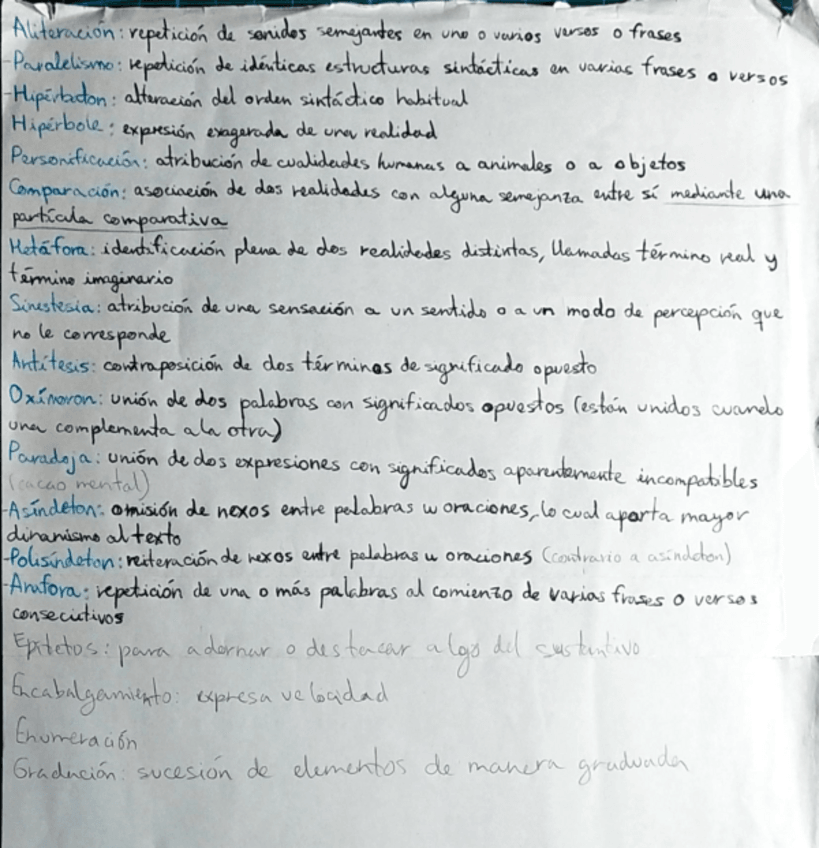 Aliteración: repetición de sonidos semejantes en uno o varios versos o frases
-Paralelismo: repetición de idénticas estructuras sintácticas en varias frases o versos
-Hipérbaton: alteración del orden sintáctico habitual
Hipérbole: expresión exagerada de una realidad
Personificación: atribución de cualidades humanas a animales o a objetos
Comparación: asociación de dos realidades con alguna semejanza entre sí mediante una
partícula comparativa
Metáfora: identificación plena de dos realidades distintas, llamadas término real y
término imaginario
Sinestesia: atribución de una sensación a un sentido o a un modo de percepción que
no le corresponde
Antítesis: contraposición de dos términos de significado opuesto
Oxímoron: unión de dos palabras con significados opuestos (están unidos cuando
una complementa a la otra)
Paradoja: unión de dos expresiones con significados aparentemente incompatibles
(cacao mental)
-Asíndeton: omisión de nexos entre palabras u oraciones, lo cual aporta mayor
dinamismo al texto
-Polisíndeton: reiteración de nexos entre palabras u oraciones (contrario a asíndeton)
-Anáfora: repetición de una o más palabras al comienzo de varias frases o versos
consecutivos
Epítetos: para adornar o destacar algo del sustantivo
Encabalgamiento: expresa velocidad
Enumeración
Gradación: sucesión de elementos de manera graduada